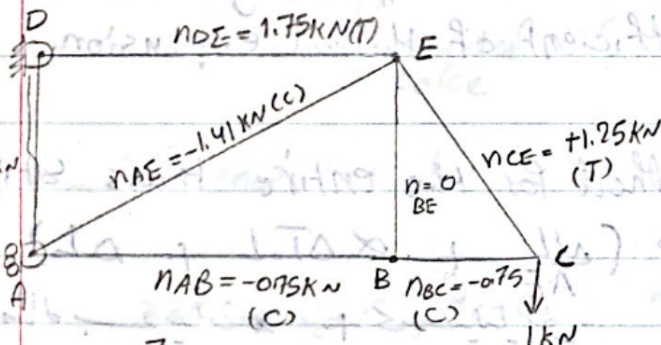 D
nDE = 1.75KN(T)
E
nAE = -1.41KN(C)
nCE = +1.25KN
(T)
n = 0
BE
N
A
nAB = -0.75KN
(C)
B
nBC = -0.75
(C)
C
1KN